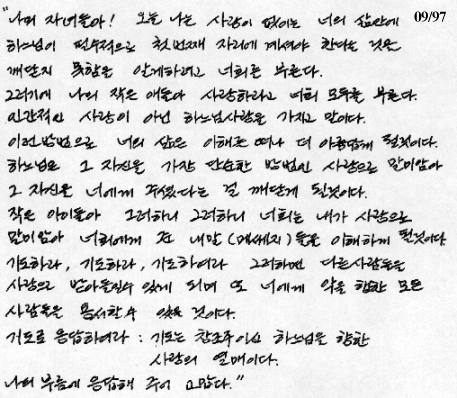 "나의 자녀들아! 오늘 나는 사랑이 없이는 너의 삶안에 09/97
하느님이 필수적으로 첫번째 자리에 계셔야 한다는 것을
깨닫지 못함을 알게하려고 너희를 부른다.
그러기에 나의 작은 애들아 사랑하라고 너희 모두를 부른다.
인간적인 사랑이 아닌 하느님사랑을 가지고 말이다.
이런방법으로 너의 삶은 이해관계 더 아름답게 될것이다.
하느님은 그 자신을 가장 단순한 방법인 사랑으로 말미암아
그 자신을 너에게 주셨다는 걸 깨닫게 될것이다.
작은 아이들아 그러하니 그러하니 너희는 내가 사랑으로
말미암아 너희에게 준 내말(메세지)들을 이해하게 될것이다
기도하라, 기도하라, 기도하여라 그러하면 다른사람들을
사랑으로 받아들일수 있게 되며 또 너에게 악을 행한 모든
사람들을 용서할수 있을 것이다.
기도로 응답하여라 : 기도는 창조주이신 하느님을 향한
사랑의 열매이다.
나의 부름에 응답해 주어 고맙다."